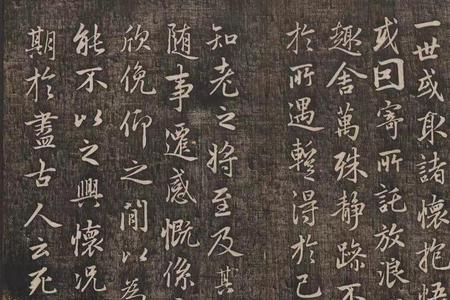 一世或取諸懷抱悟
或因寄所託放浪
趣舍萬殊静躁不
於所遇蹔得於己
知老之將至及其
随事遷感慨係
欣俛仰之閒以為
能不以之興懷況
期於盡古人云死